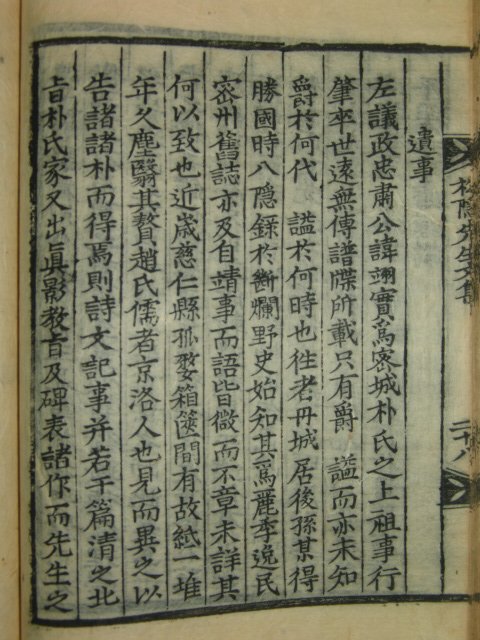 松隐先生文集
二十八
遺事
左議政忠肅公諱翊實爲密城朴氏之上祖事行
肇卒世遠無傳譜牒所載只有爵 諡而亦未知
爵於何代 諡於何時也徃者丹城居後孫某得
勝國時八隐錄於斷爛野史始知其爲麗季逸民
密州舊誌亦及自靖事而語皆微而不章未詳其
何以致也近歲慈仁縣孤嫠箱篋間有故紙一堆
年久塵翳其贅趙氏儒者京洛人也見而異之以
告諸諸朴而得焉則詩文記事并若干篇清之北
旨朴氏家又出眞影教旨及碑表諸作而先生之